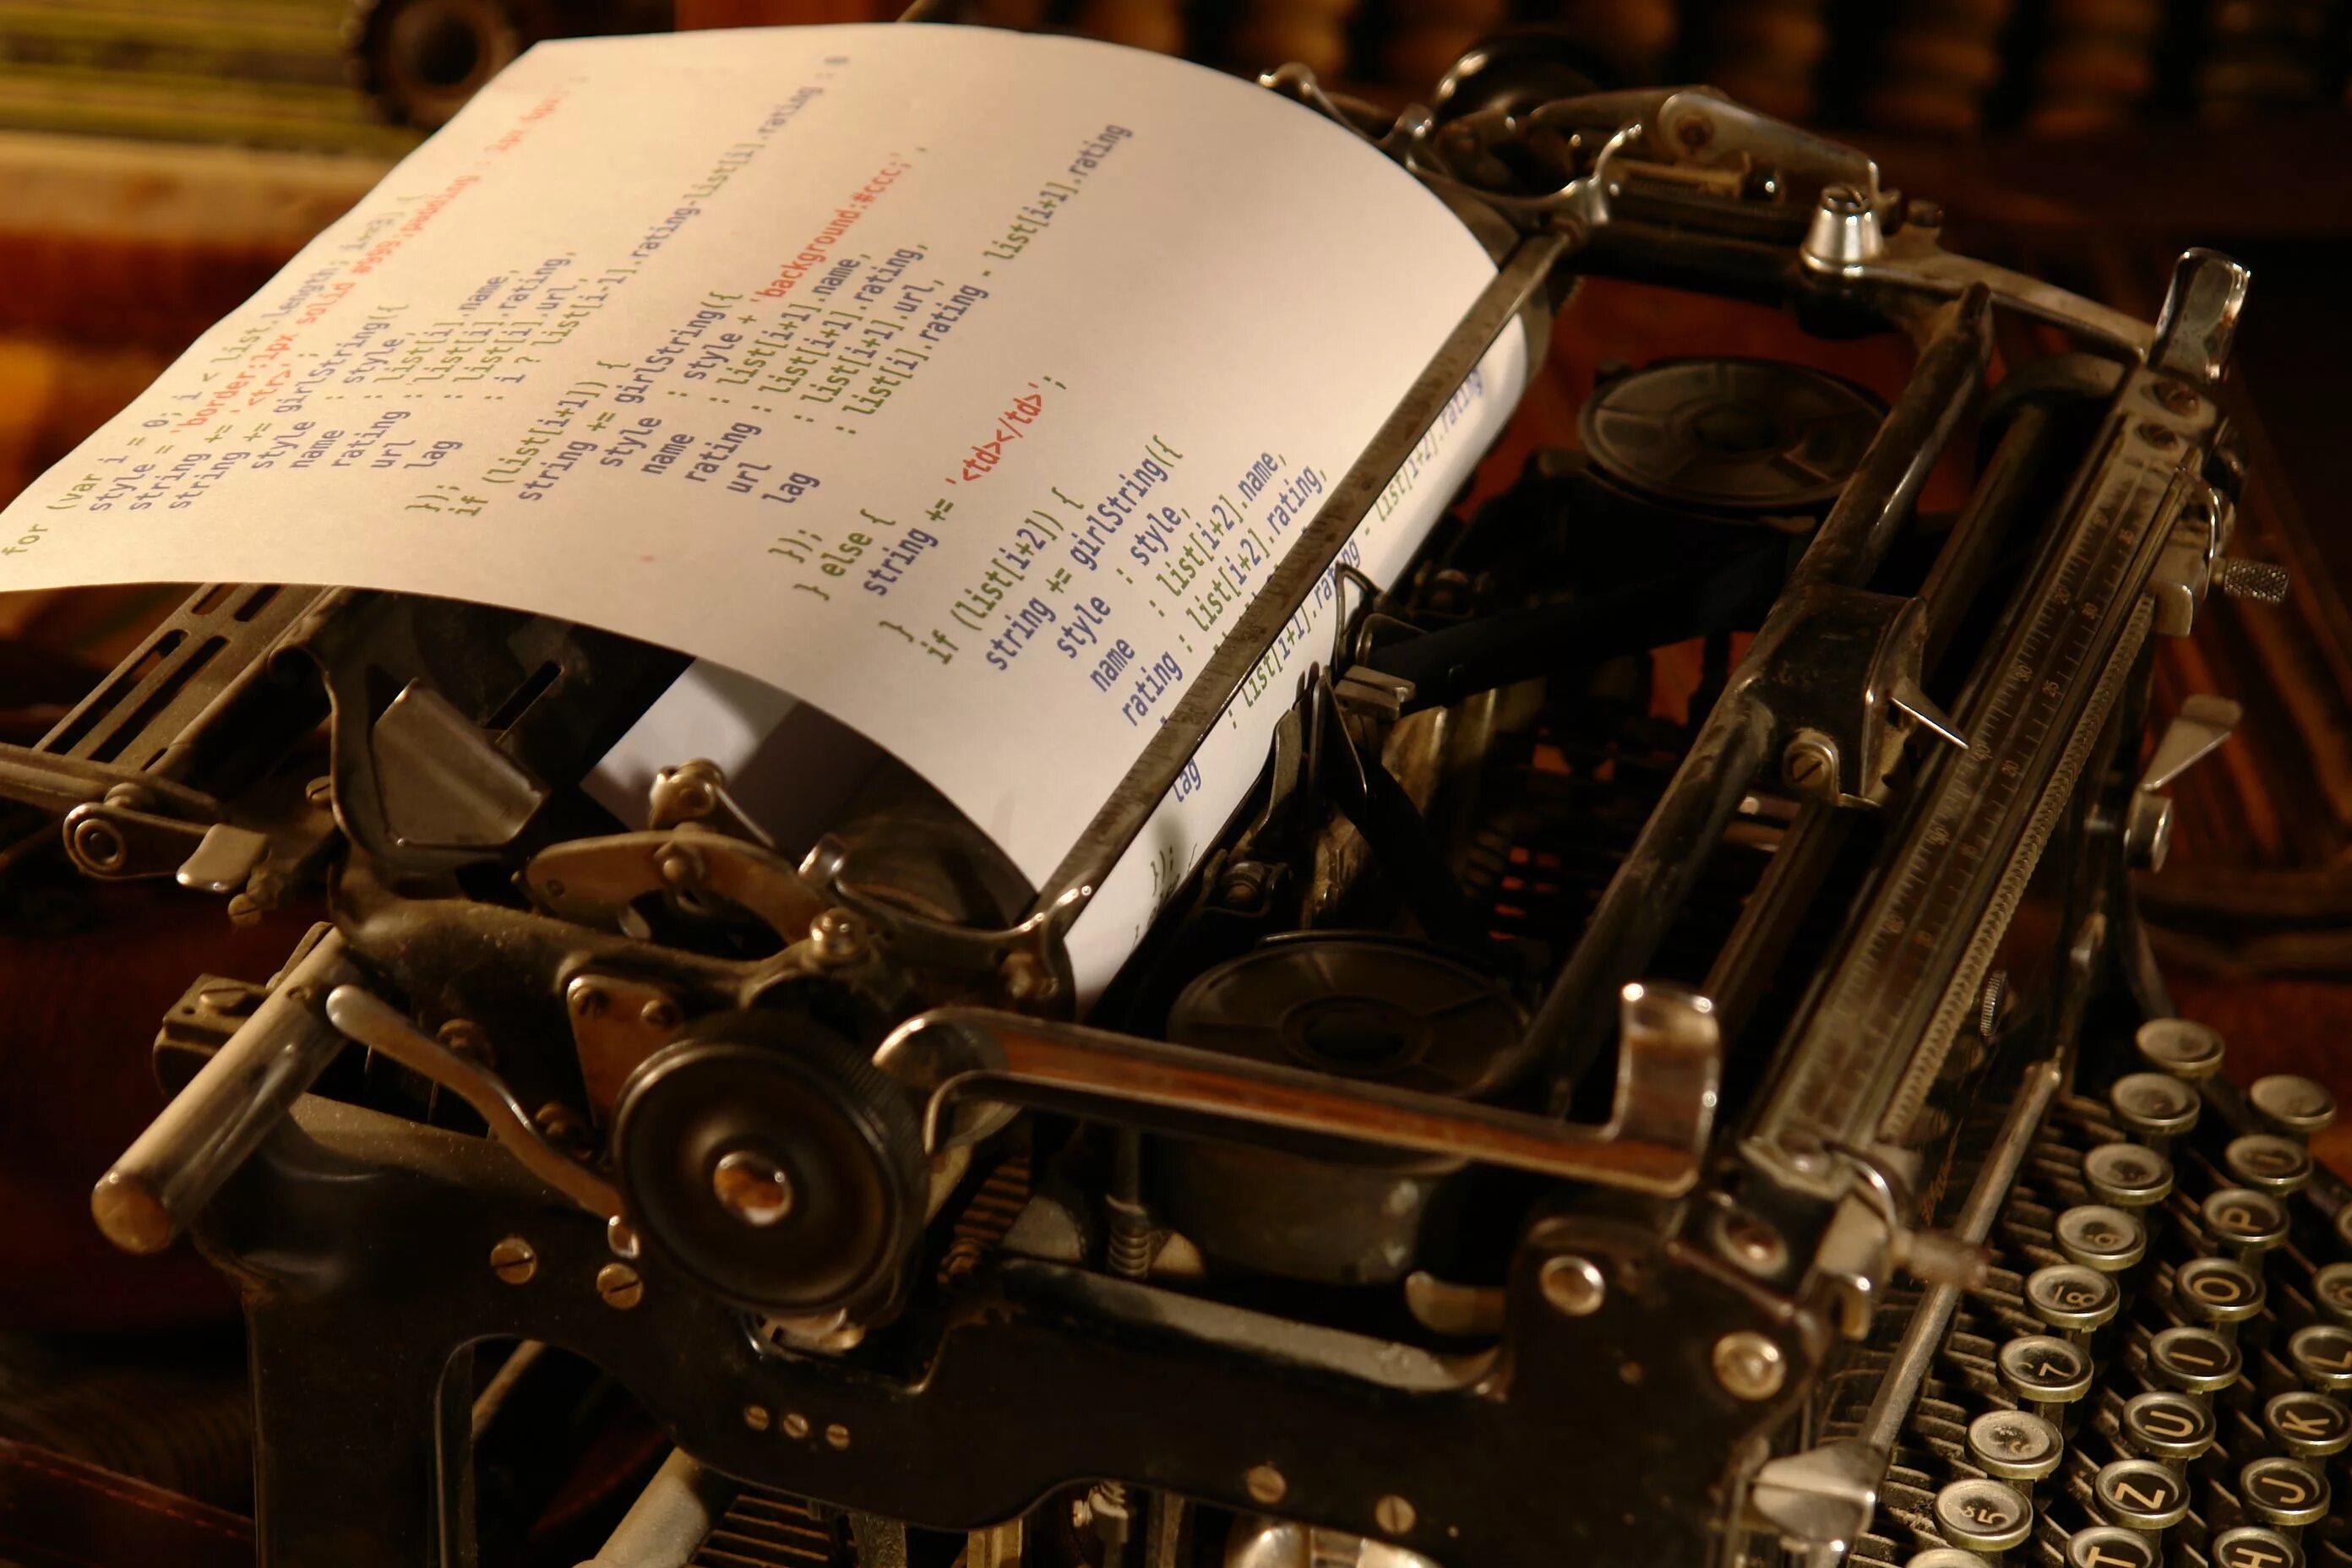 for (var i = 0; i < list.length; i+=3) {
style = 'border:1px solid #999;padding : 2px 6px' ;
string += '<tr>' ;
string += girlString({
style : style,
name : list[i].name,
rating : list[i].rating,
url : list[i].url,
lag : i ? list[i-1].rating-list[i].rating : 0
});
if (list[i+1]) {
string += girlString({
style : style + 'background:#ccc;' ,
name : list[i+1].name,
rating : list[i+1].rating,
url : list[i+1].url,
lag : list[i].rating - list[i+1].rating
});
} else {
string += '<td></td>' ;
}
if (list[i+2]) {
string += girlString({
style : style,
name : list[i+2].name,
rating : list[i+2].rating,
lag : list[i+1].rating - list[i+2].rating
});
9
8
7
6
5
P
O
I
U
Z
T
L
K
J
H